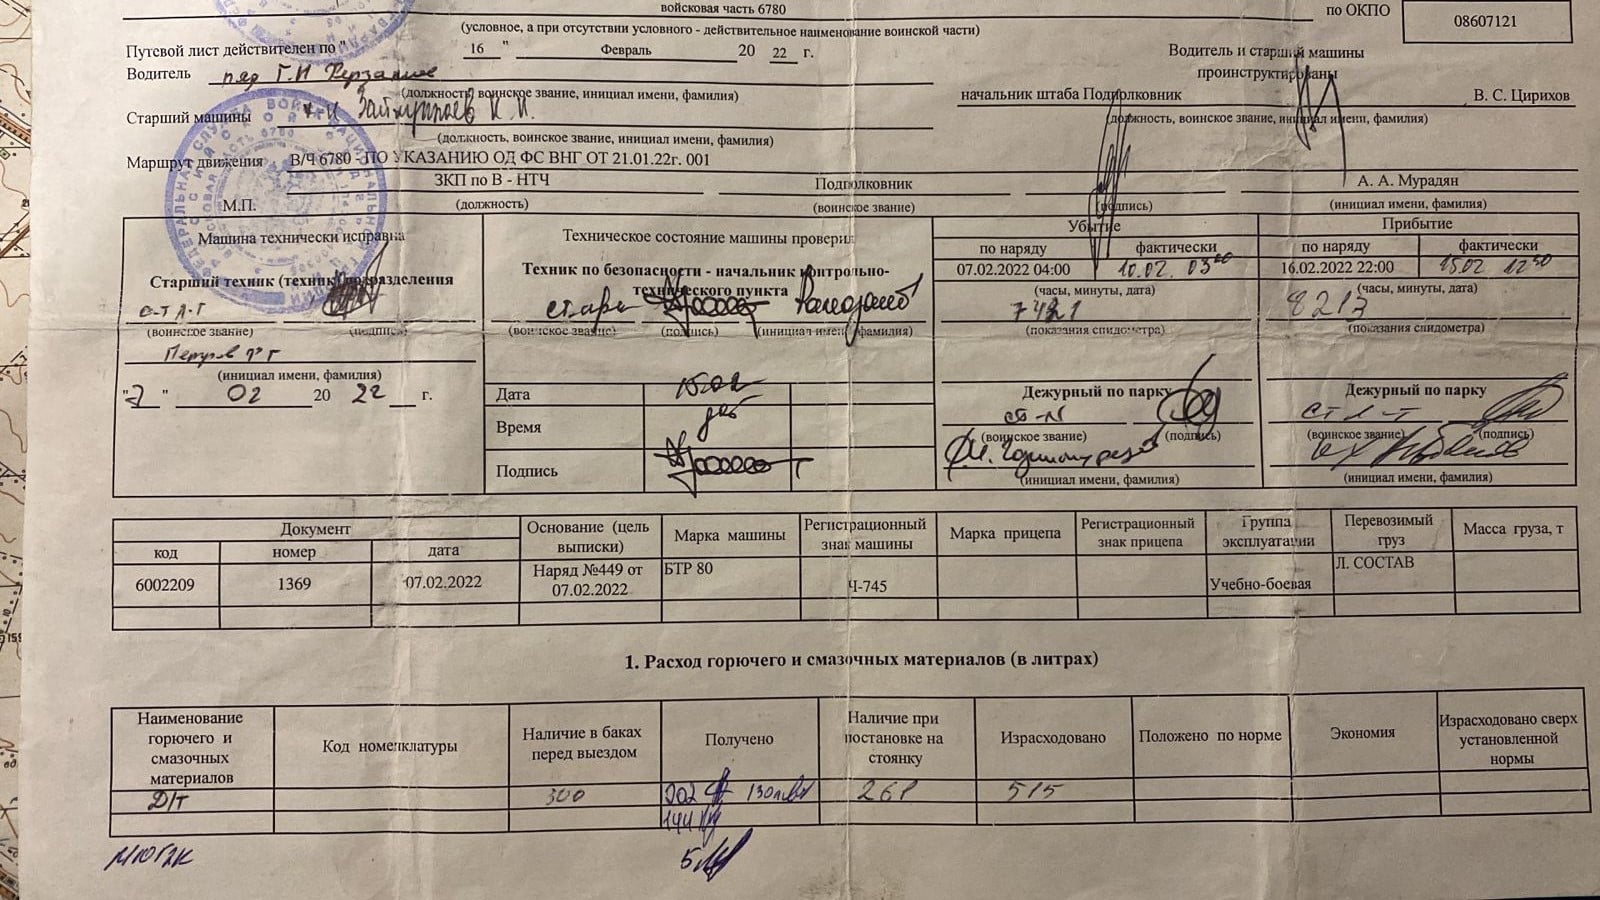 войсковая часть 6780
по ОКПО 08607121
(условное, а при отсутствии условного - действительное наименование воинской части)
Путевой лист действителен по " 16 " Февраль 20 22 г.
Водитель и старший машины
проинструктированы
Водитель
(должность, воинское звание, инициал имени, фамилия)
начальник штаба Подполковник В. С. Цирихов
Старший машины
(должность, воинское звание, инициал имени, фамилия)
(должность, воинское звание, инициал имени, фамилия)
Маршрут движения В/Ч 6780 - ПО УКАЗАНИЮ ОД ФС ВНГ ОТ 21.01.22г. 001
ЗКП по В - НТЧ Подполковник А. А. Мурадян
М.П. (должность) (воинское звание) (подпись) (инициал имени, фамилия)
Машина технически исправна
Старший техник (техник) подразделения
(воинское звание) (подпись)
(инициал имени, фамилия)
" 7 " 02 20 22 г.
Техническое состояние машины проверил
Техник по безопасности - начальник контрольно-
технического пункта
(воинское звание) (подпись) (инициал имени, фамилия)
Дата
Время
Подпись
Убытие Прибытие
по наряду фактически по наряду фактически
07.02.2022 04:00 10.02. 03 00 16.02.2022 22:00 15.02
(часы, минуты, дата) (часы, минуты, дата)
8213
(показания спидометра) (показания спидометра)
Дежурный по парку Дежурный по парку
ст Л-т
(воинское звание) (подпись) (воинское звание) (подпись)
(инициал имени, фамилия) (инициал имени, фамилия)
Документ Основание (цель выписки) Марка машины Регистрационный знак машины Марка прицепа Регистрационный знак прицепа Группа эксплуатации Перевозимый груз Масса груза, т
код номер дата
6002209 1369 07.02.2022 Наряд №449 от 07.02.2022 БТР 80 Ч-745 Учебно-боевая Л. СОСТАВ
1. Расход горючего и смазочных материалов (в литрах)
Наименование горючего и смазочных материалов Код номенклатуры Наличие в баках перед выездом Получено Наличие при постановке на стоянку Израсходовано Положено по норме Экономия Израсходовано сверх установленной нормы
Д/т 300 202 130 261 515
144